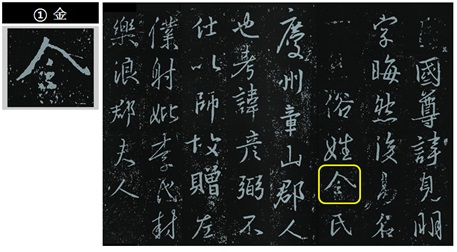 ① 金
金
國尊諱見明
字晦然後易名
一 俗姓金氏
慶州章山郡人
也考諱彦弼不
仕以師故贈左
僕射妣李氏封
樂浪郡夫人